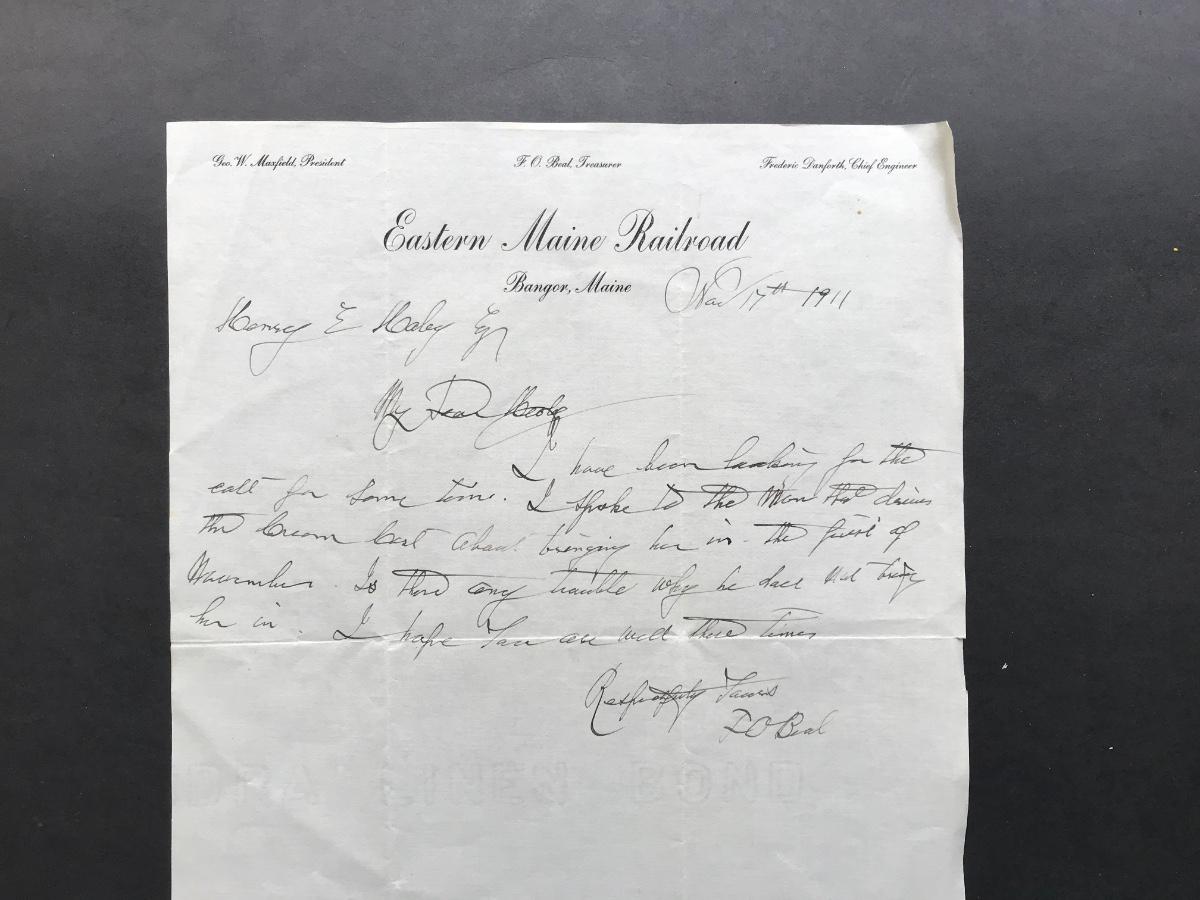 Geo. W. Maxfield, President
F. O. Beal, Treasurer
Frederic Danforth, Chief Engineer
Eastern Maine Railroad
Bangor, Maine
Nov 17th 1911
Henry E Haley Esq
My Dear
I have been looking for the
colt for some time. I spoke to the Man that drives
the Cream Cart about bringing her in the first of
November. Is there any trouble why he does not bring
her in. I hope you are well these times
Respectfully Yours
F O Beal
BOND